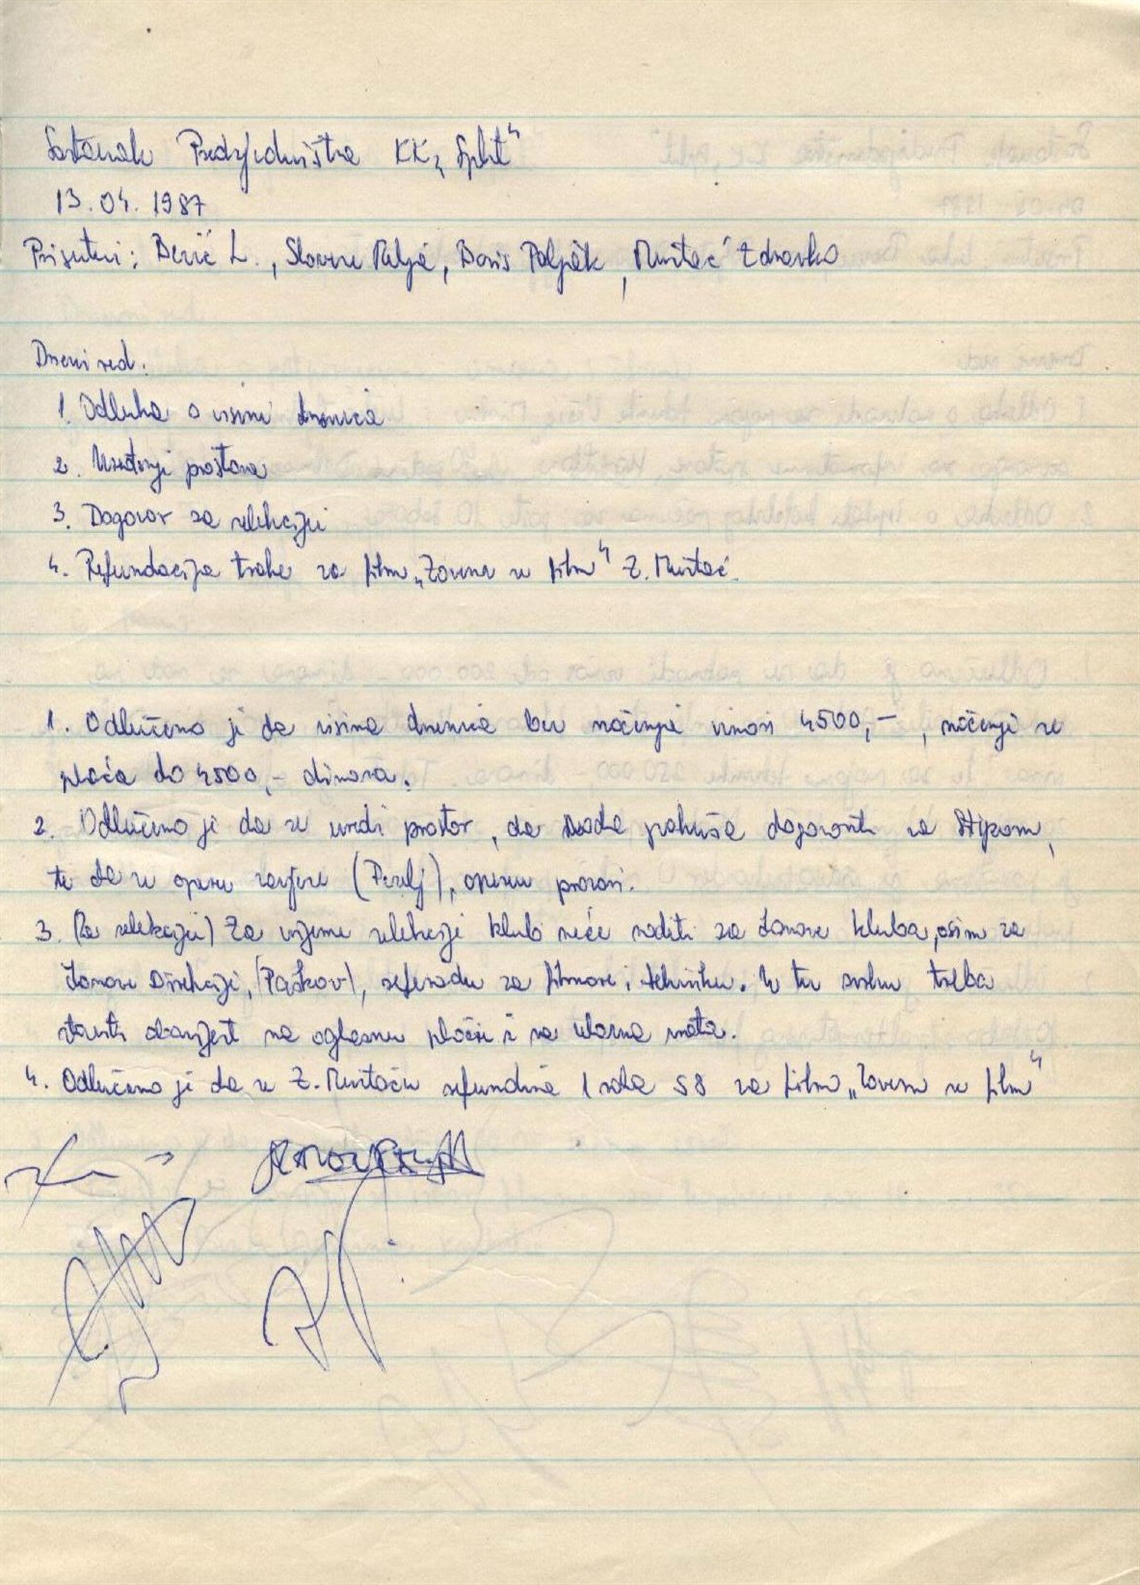 Sastanak Predsjedništva KK „Split“
13.04.1987
Prisutni: Berić L., Slaven Relja, Boris Poljak, Muštać Zdravko
Dnevni red.
1. Odluka o visini dnevnica
2. Uređenje prostora
3. Dogovor za selekciju
4. Refundacija trake za film „Zaveru u film“ Z. Muštać.
1. Odlučeno je da visina dnevnica bez noćenja iznosi 4500,- , noćenje se
plaća do 4500,- dinara.
2. Odlučeno je da se uredi prostor, da pokuša dogovoriti sa Stipom,
te da se operu zavjese (Perilj), operu prozori.
3. (Za selekciju) Za vrijeme selekcije klub neće raditi za članove kluba, osim za
članove Direkcije, (Paškov), referadu za filmove i tehniku. U tu svrhu treba
staviti obavijest na oglasnu ploču i na ulazna vrata.
4. Odlučeno je da se Z. Muštaću refundira 1 rola S8 za film „ u film“